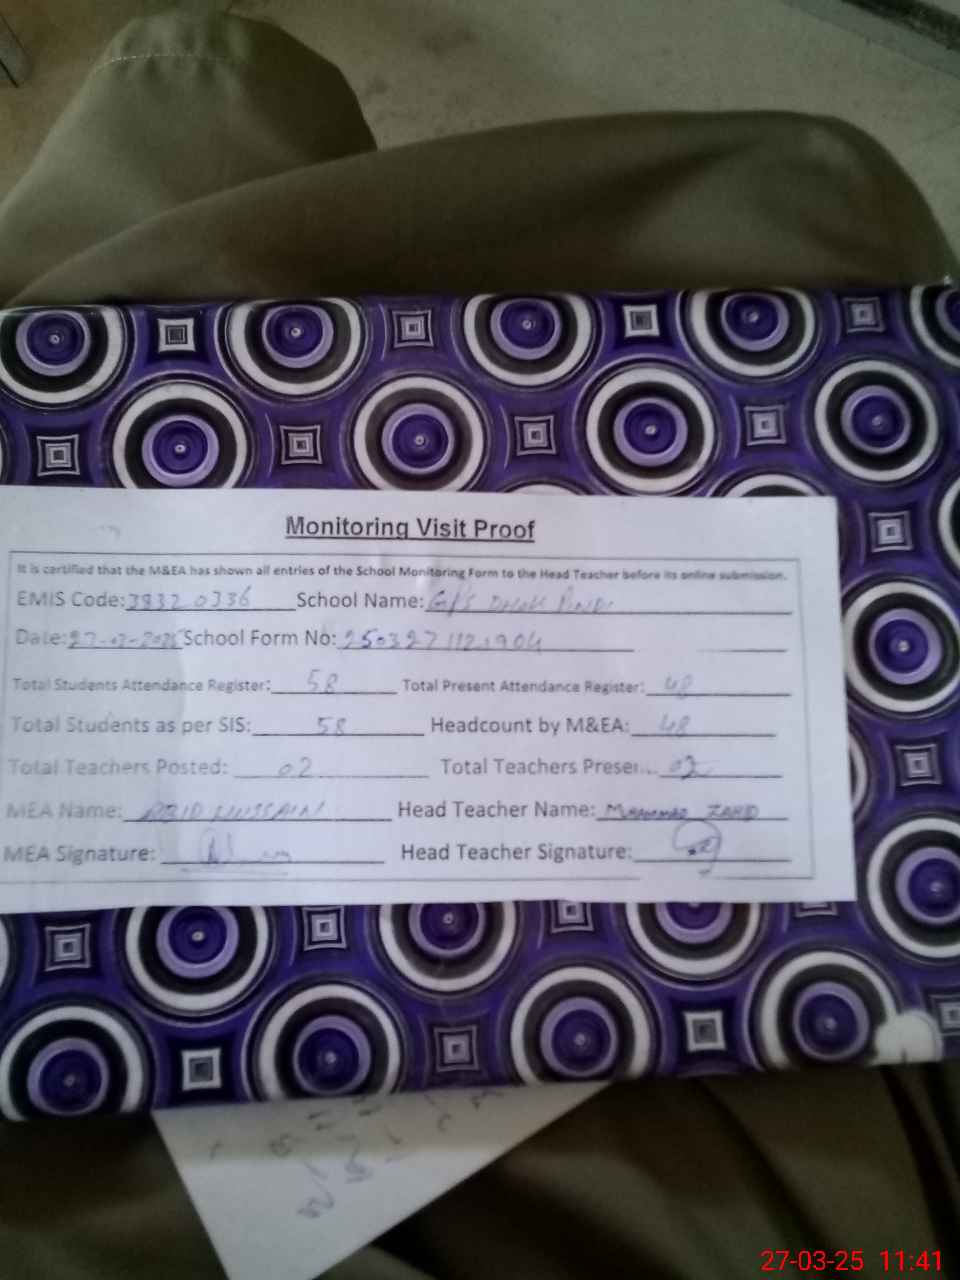 Monitoring Visit Proof
It is certified that the M&EA has shown all entries of the School Monitoring Form to the Head Teacher before its online submission.
EMIS Code: 38320336 School Name: GPS DHOK PINDI
Date: 27-03-2025 School Form No:
Total Students Attendance Register: 58 Total Present Attendance Register: 48
Total Students as per SIS: 58 Headcount by M&EA: 48
Total Teachers Posted: 02 Total Teachers Present: 02
MEA Name: ABID HUSSAIN Head Teacher Name: MUHAMMAD ZAHID
MEA Signature: Head Teacher Signature:
27-03-25 11:41